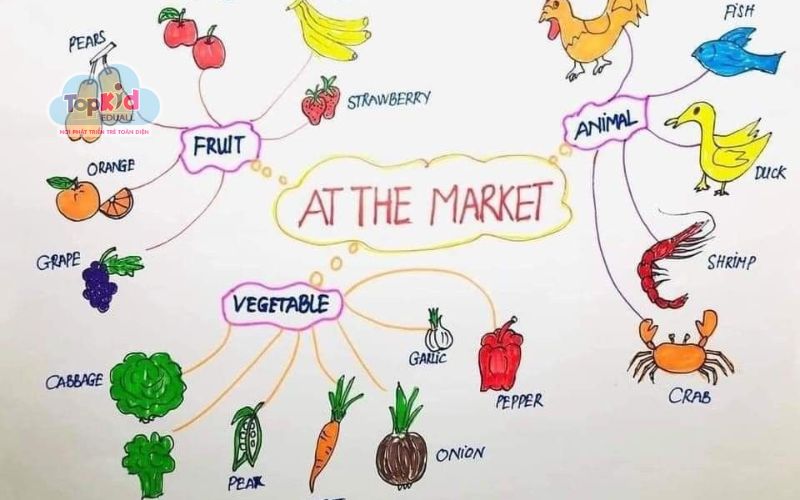 PEARS
TopKid
EDUALL
NƠI PHÁT TRIỂN TRẺ TOÀN DIỆN
STRAWBERRY
FRUIT
ORANGE
GRAPE
AT THE MARKET
FISH
ANIMAL
DUCK
SHRIMP
CRAB
VEGETABLE
CABBAGE
GARLIC
PEPPER
PEA
ONION